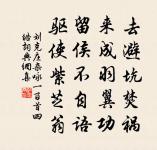 去避坑焚禍
来成羽翼功
留侯不自語
驱使紫芝翁
刘克庄杂咏一百首四
皓詩詞典佣集